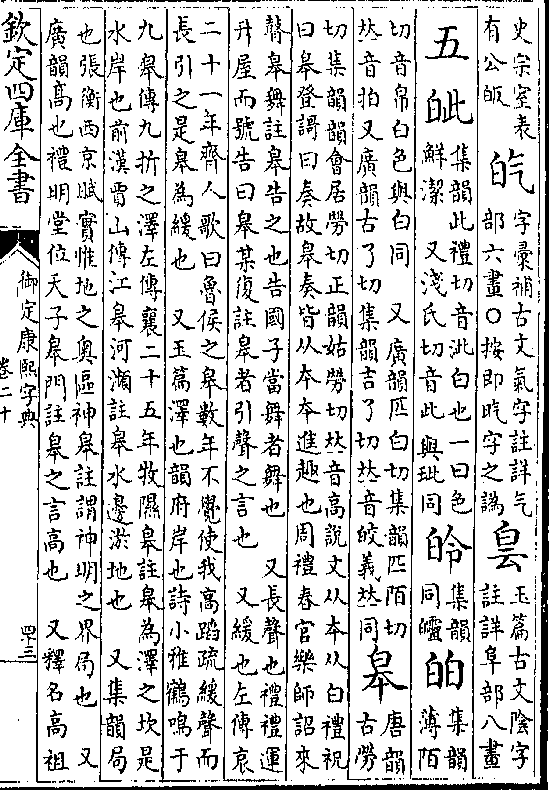 史宗室表
有公皈
字彙補古文氣字註詳气
部六畫〇按即字之譌
玉篇古文陰字
註詳阜部八畫
五
皉
集韻此禮切音泚白也一曰色
鮮潔 又淺氏切音此 與玼同
皊
集韻
同
㿟
集韻
薄陌
切音帛白色與白同 又廣韻匹白切集韻匹陌切
𠀤音拍又廣韻古了切集韻吉了切𠀤音皎義𠀤同
皋
唐韻
古勞
切集韻韻會居勞切正韻姑勞切𠀤音高說文从夲从白禮祝
曰皋登謌曰奏故皋奏皆从夲夲進趣也周禮春官樂師詔來
瞽皋舞註皋告之也告國子當舞者舞也 又長聲也禮禮運
升屋而號告曰皋某復註皋者引聲之言也 又緩也左傳哀
二十一年齊人歌曰魯侯之皋數年不覺使我高蹈疏緩聲而
長引之是皋為緩也 又玉篇澤也韻府岸也詩小雅鶴鳴于
九皋傳九折之澤左傳襄二十五年牧隰皋註皋為澤之坎是
水岸也前漢賈山傳江皋河瀕註皋水邊淤地也 又集韻局
也張衡西京賦實惟地之奧區神皋註謂神明之界局也 又
廣韻高也禮明堂位天子皋門註皋之言高也 又釋名高祖
欽定四庫全書
御定康熙字典
卷二十
罒三